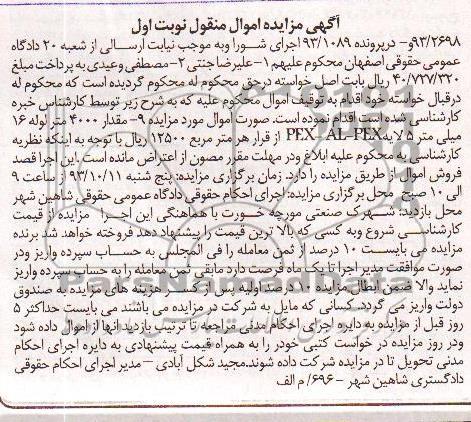 آگهی مزایده اموال منقول نوبت اول
۹۳/۲۶۹۸و- درپرونده ۹۳/۱۰۸۹ اجرای شورا وبه موجب نیابت ارسالی از شعبه ۲۰ دادگاه
عمومی حقوقی اصفهان محکوم علیهم ۱-علیرضا جنتی ۲-مصطفی وعیدی به پرداخت مبلغ
۴۰/۷۲۷/۳۲۰ ریال بابت اصل خواسته درحق محکوم له محکوم گردیده است که محکوم له
درقبال خواسته خود اقدام به توقیف اموال محکوم علیه که به شرح زیر توسط کارشناس خبره
کارشناسی شده است اقدام نموده است. صورت اموال مورد مزایده ۹- مقدار ۴۰۰۰ متر لوله ۱۶
میلی متر ۵ لایه PEX- AL-PEX از قرار هر متر مربع ۱۲۵۰۰ ریال با توجه به اینکه نظریه
کارشناسی به محکوم علیه ابلاغ ودر مهلت مقرر مصون از اعتراض مانده است .این اجرا قصد
فروش اموال از طریق مزایده را دارد. زمان برگزاری مزایده: پنج شنبه ۹۳/۱۰/۱۱ از ساعت ۹
الی ۱۰ صبح. محل برگزاری مزایده: اجرای احکام حقوقی دادگاه عمومی حقوقی شاهین شهر
محل بازدید: شهرک صنعتی مورچه خورت با هماهنگی این اجرا مزایده از قیمت
کارشناسی شروع وبه کسی که بالا ترین قیمت را پیشنهاد دهد فروخته خواهد شد برنده
مزایده می بایست ۱۰ درصد از ثمن معامله را فی المجلس به حساب سپرده واریز ودر
صورت موافقت مدیر اجرا تا یک ماه فرصت دارد مابقی ثمن معامله را به حساب سپرده واریز
نماید والا ضمن ابطال مزایده ۱۰ درصد اولیه پس از کسر هزینه های مزایده به صندوق
دولت واریز می گردد. کسانی که مایل به شرکت در مزایده می باشند می بایست حداکثر ۵
روز قبل از مزایده به دایره اجرای احکام مدنی مراجعه تا ترتیب بازدید انها از اموال داده شود
ودر روز مزایده در خواست کتبی خودر را به همراه قیمت پیشنهادی به دایره اجرای احکام
مدنی تحویل تا در مزایده شرکت داده شوند.مجید شکل آبادی – مدیر اجرای احکام حقوقی
دادگستری شاهین شهر -۶۹۶/ م الف